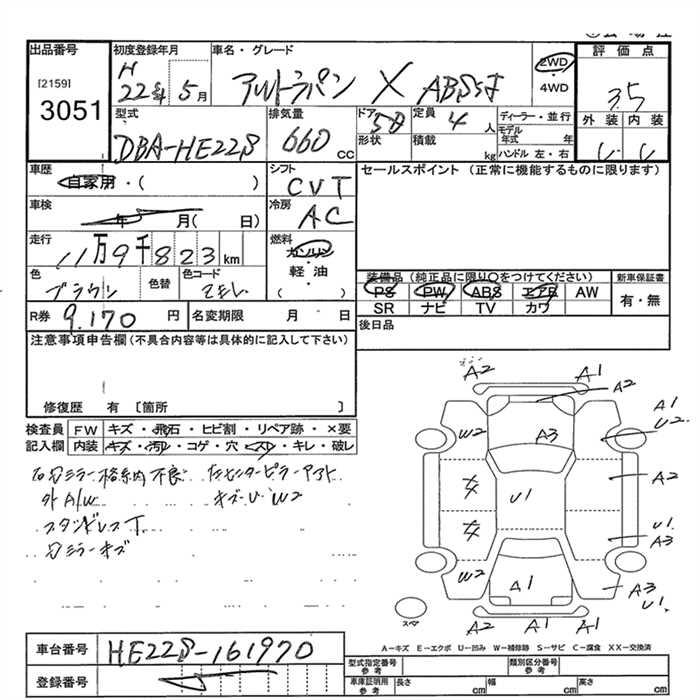 出品番号
[2159]
3051
初度登録年月
H
22年 5月
車名・グレード
アルトラパン X ABS付
2WD
・
4WD
評価点
3.5
外装 内装
型式
DBA-HE22S
排気量
660 cc
ドア 5D
形状
定員 4 人
積載 kg
ディーラー・並行
モデル
年式 年
ハンドル 左・右
車歴
自家用・( )
シフト
CVT
セールスポイント (正常に機能するものに限ります)
車検
年 月( 日)
冷房
AC
走行
11万9千823km
燃料
ガソリン
・
軽油
( )
色
ブラウン
色替
色コード
ZEL
装備品(純正品に限り○をつけてください)
PS PW ABS エアB AW
SR ナビ TV カワ
新車保証書
有・無
R券 9,170 円
名変期限 月 日
後日品
注意事項申告欄(不具合内容等は具体的に記入して下さい)
修復歴 有 [箇所 ]
検査員 FW キズ・飛石・ヒビ割・リペア跡・×要
記入欄 内装 キズ・汚れ・コゲ・穴・スレ・キレ・破レ
右ドアミラー格納不良
外A/W
スタッドレスT
ドアミラーキズ
左センターピラーアウト
キズ・U W2
A2 A1
A2
A1
U2
W2 A3
A2
女 U1
女
U1
A3
W2 A1
A3
U1
A2 A1 A1
スペア
車台番号 HE22S-161970
登録番号
A-キズ E-エクボ U-凹み W-補修跡 S-サビ C-腐食 XX-交換済
型式指定番号
参考
類別区分番号
参考
車庫証明用
参考
長さ cm 幅 cm 高さ cm